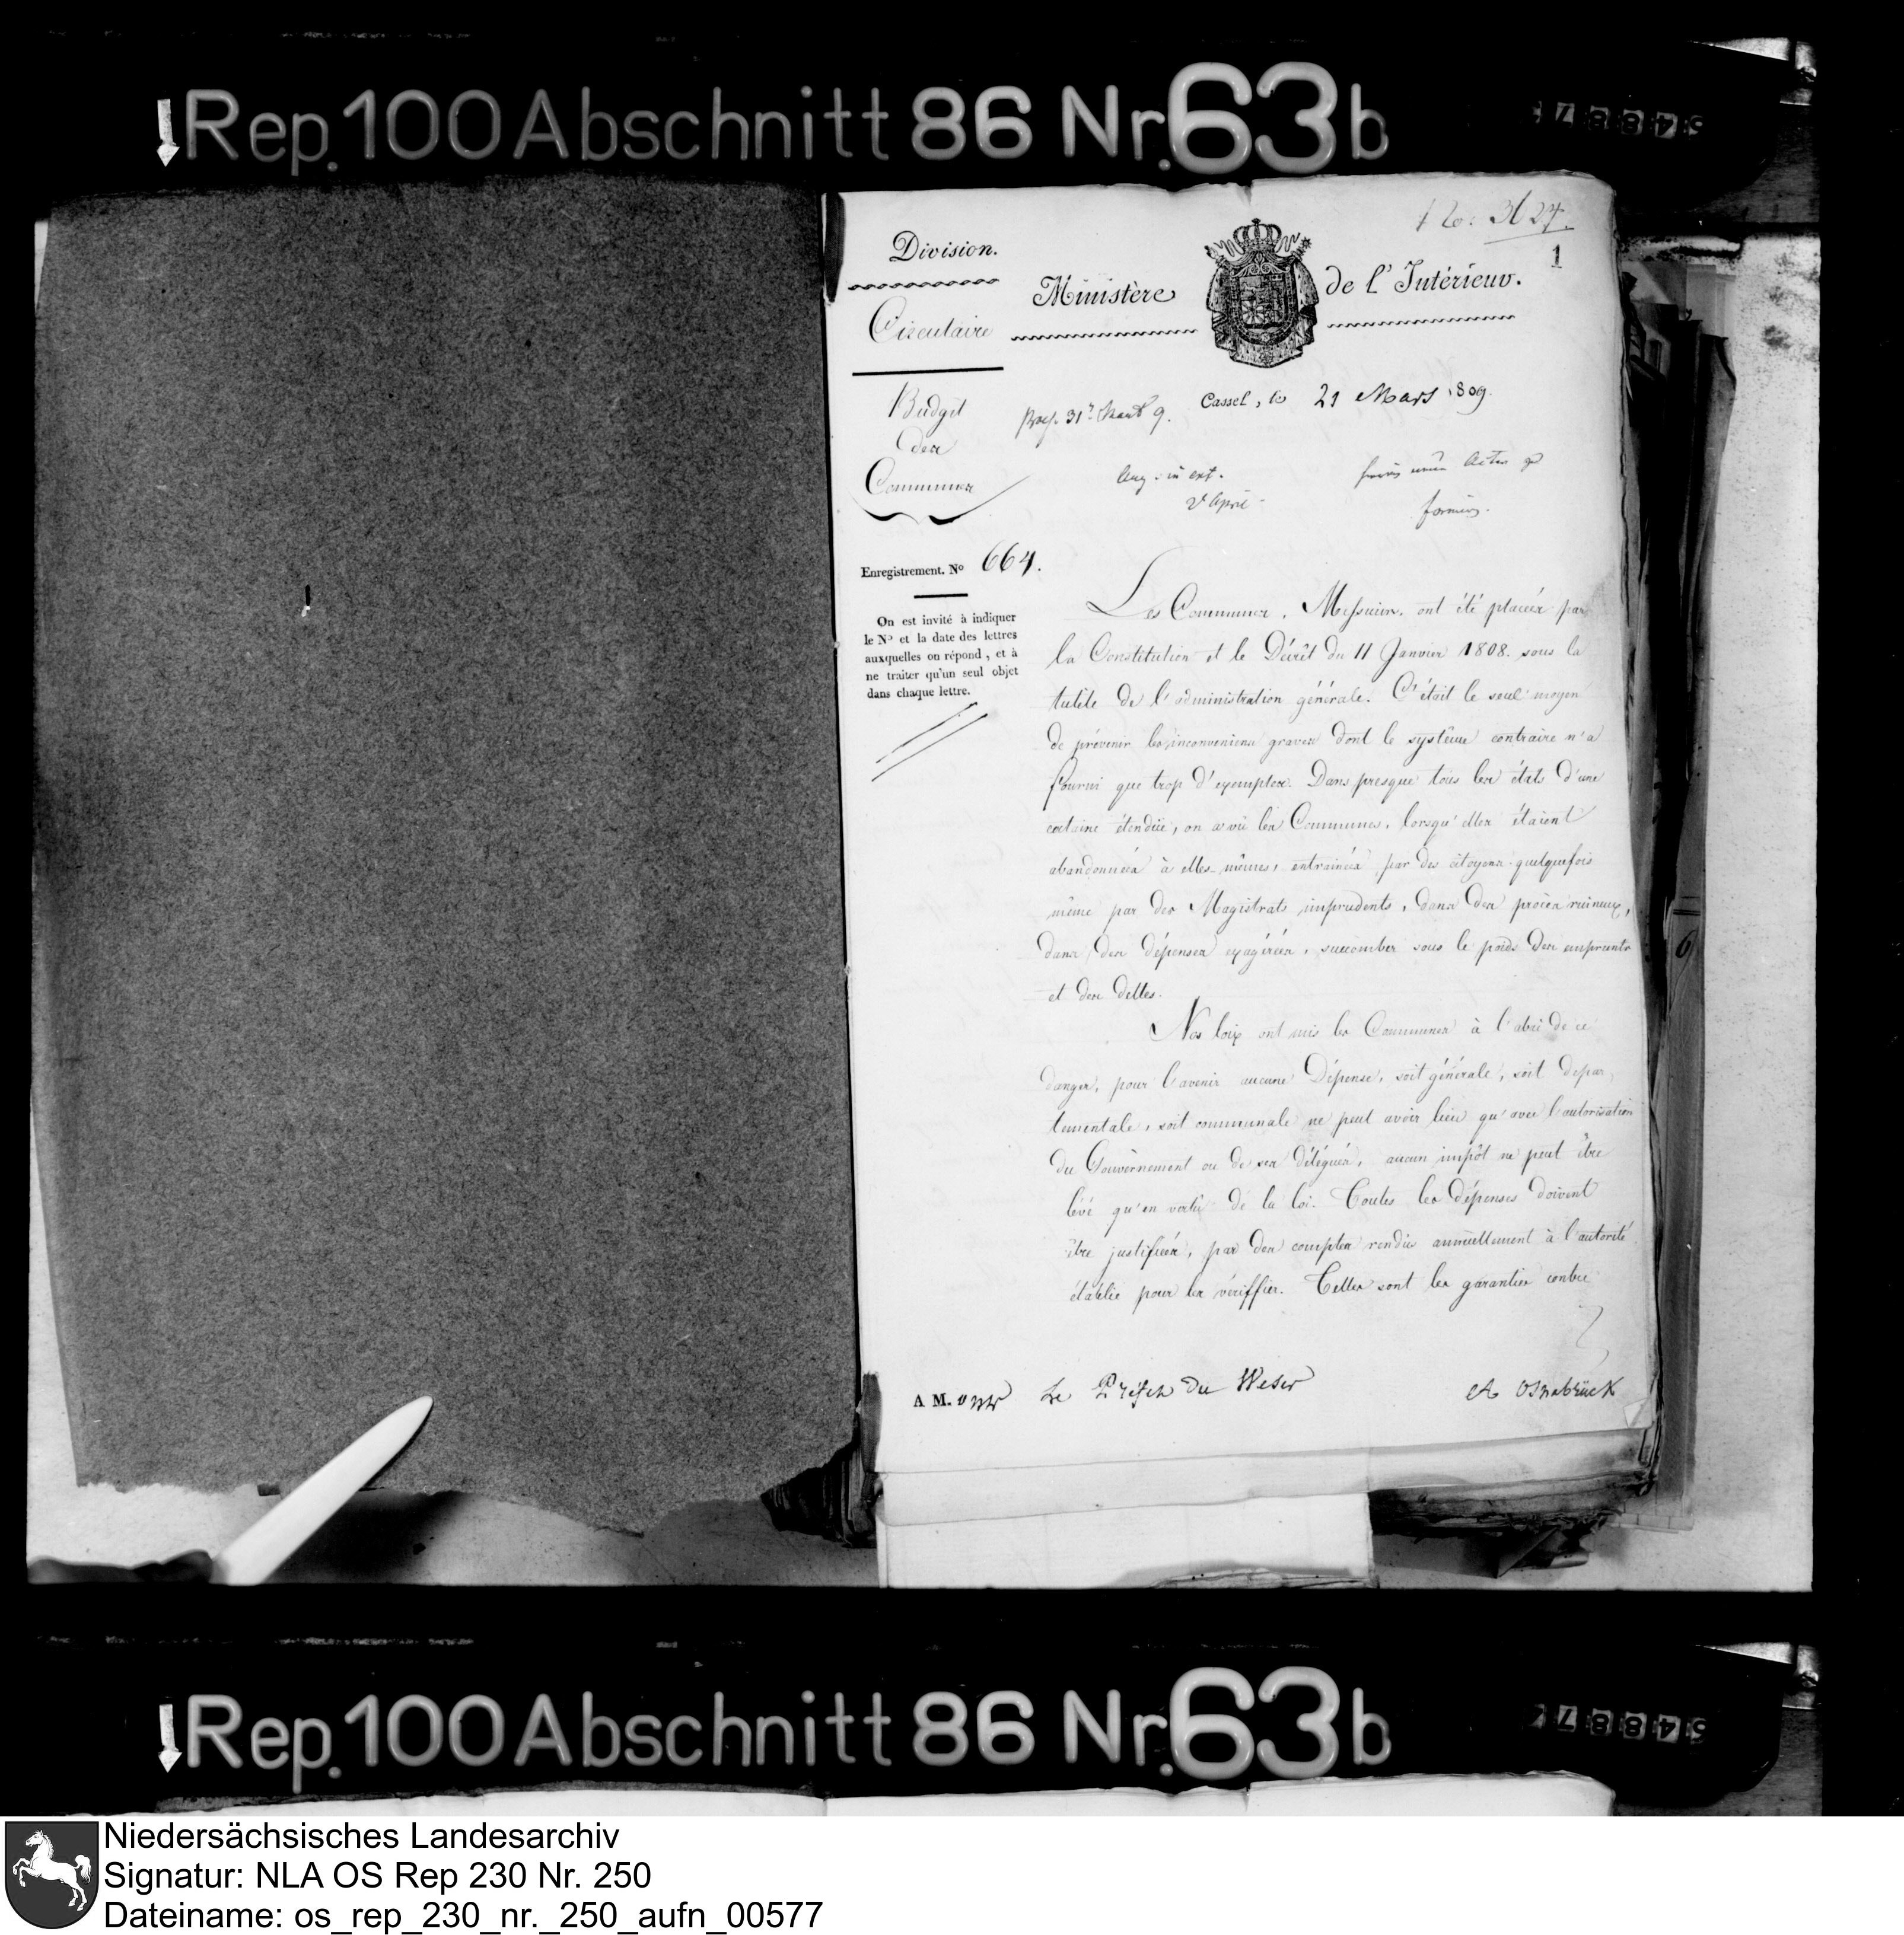 Rep. 100 Abschnitt 86 Nr. 63 b
54887
No. 3627.
1
Division.
Circulaire
Ministère de l'Intérieur.
Budget
des
Communes
Cassel, le 21 Mars 1809.
2 April
Enregistrement. No 664.
On est invité à indiquer
le No et la date des lettres
auxquelles on répond, et à
ne traiter qu'un seul objet
dans chaque lettre.
Les Communes, Messieurs, ont été placées par
la Constitution et le Décrêt du 11 Janvier 1808. sous la
tutèle de l'administration générale. C'était le seul moyen
de prévenir les inconveniens graves dont le système contraire n'a
fourni que trop d'exemples. Dans presque tous les états d'une
certaine étendüe, on a vû les Communes, lorsqu'elles étaient
abandonnées à elles-mêmes, entrainées par des citoyens quelquefois
même par des Magistrats imprudents, dans des procès ruineux,
dans des dépenses exagérées, succomber sous le poids des emprunts
et des dettes.
Nos loix ont mis les Communes à l'abri de ce
danger, pour l'avenir aucune Dépense, soit générale, soit depar,
tementale, soit communale ne peut avoir lieu qu'avec l'autorisation
du Gouvèrnement ou de ses délégués, aucun impôt ne peut être
levé qu'en vertu de la loi. Toutes les dépenses doivent
être justifiées, par des comptes rendus annuellement à l'autorité
établie pour les vériffier. Telles sont les garanties contre
A M. Le Préfet du Weser A Osnabrück
6
Rep. 100 Abschnitt 86 Nr. 63 b
54887
Niedersächsisches Landesarchiv
Signatur: NLA OS Rep 230 Nr. 250
Dateiname: os_rep_230_nr._250_aufn_00577